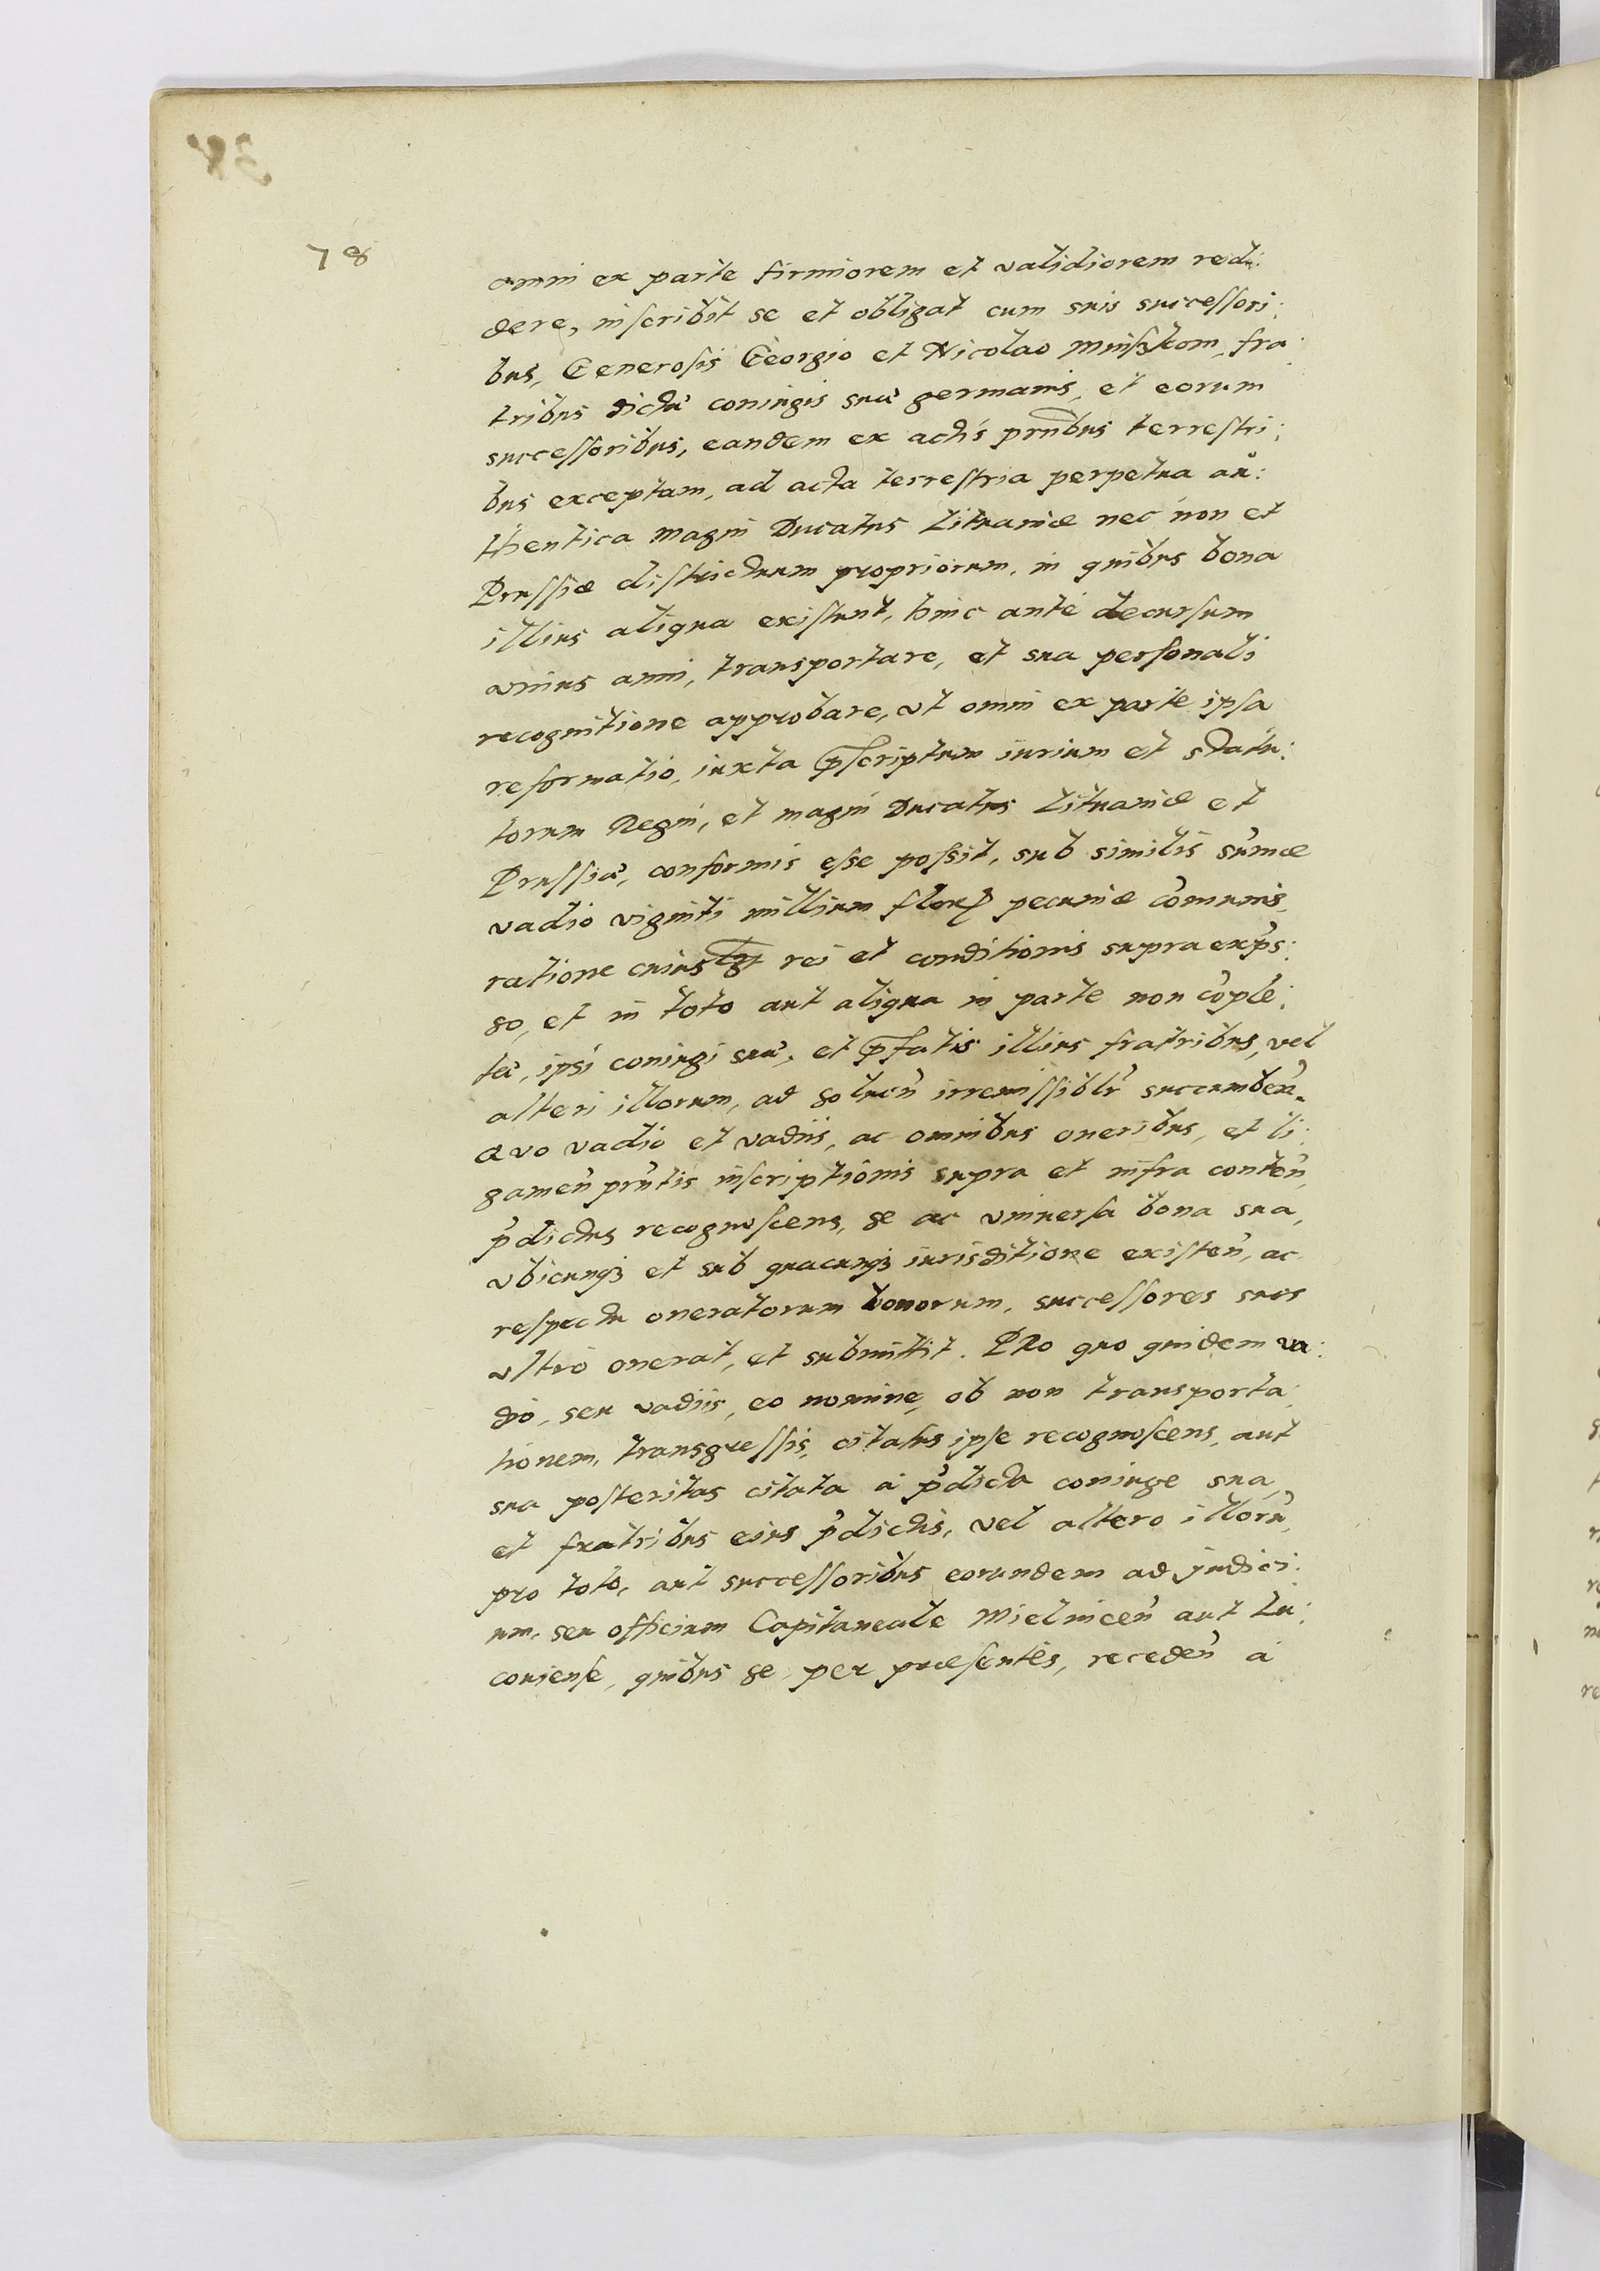 78
omni ex parte firmiorem et validiorem red:
dere, inſcribit se et obligat cum suis succeſſori:
bus, Generoſis Georgio et Nicolao Minſzkom, fra:
tribus dictæ coniugis suæ germanis, et eorum
succeſſoribus, eandem ex actis prñbus terreſtri:
bus exceptam, ad acta terreſtria perpetua au:
thentica magni Ducatus Lituaniæ nec non et
Pruſſiæ diſtrictuum propriorum, in quibus bona
illius aliqua exiſtunt, hinc ante decurſum
vnius anni, transportare, et sua perſonali
recognitione approbare, vt omni ex parte ipſa
reformatio, iuxta p̃ſcriptum iurium et statu:
torum Regni, et magni Ducatus Lituaniæ et
Pruſſiæ, conformis eſse poſsit, sub similis sum̃æ
vadio viginti millium floꝝ pecuniæ com̃unis,
ratione cuius rei et conditionis supra exp̃s:
so, et in toto aut aliqua in parte non com̃ple:
tæ, ipſi coniugi suæ, et p̃fatis illius fratribus, vel
alteri illorum, ad soluen̄ irremiſſiblr̃ succumben̄.
Qvo vadio et vadiis, ac omnibus oneribus, et li:
gamen̄ prñtis inſcriptionis supra et infra conten̄,
p̃dictus recognoſcens, se ac vniuerſa bona sua,
vbicunqꝫ et sub quacunqꝫ iurisditione exiſten̄, ac
reſpectu oneratorum bonorum, succeſſores suos
vltro onerat, et submittit. PRo quo quidem va:
dio, seu vadiis, eo nomine, ob non transporta:
tionem, transgreſſis, citatus ipſe recognoſcens, aut
sua poſteritas citata à p̃dicta coniuge sua,
et fratribus eius p̃dictis, vel altero illorũ,
pro toto, aut succeſſoribus eorundem ad judici:
um, seu officium Capitaneale Mielnicen̄ aut Lu:
couienſe, quibus se per præſentes, receden̄ à